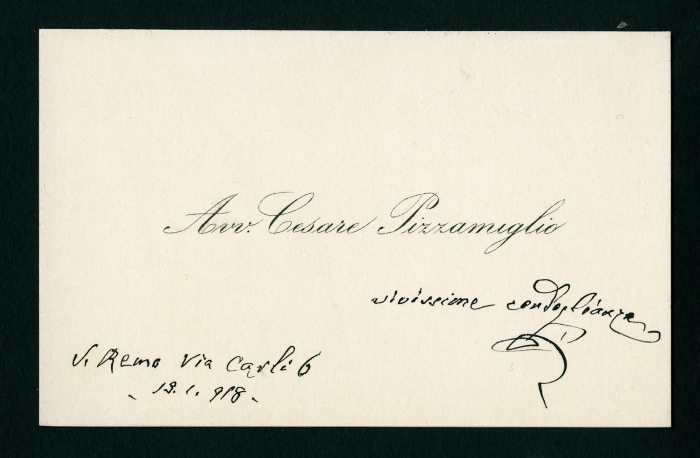 Avv. Cesare Pizzamiglio
vivissime condoglianze
S. Remo Via Carli 6
- 13.1.918 -